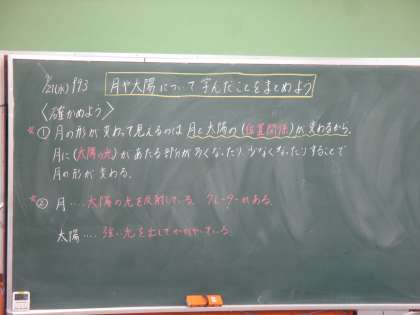 9/21(水) P93
月や太陽について学んだことをまとめよう
〈確かめよう〉
★① 月の形が変わって見えるのは 月と太陽の(位置関係)が変わるから。
月に(太陽の光)があたる部分が多くなったり、少なくなったりすることで
月の形が変わる。
★② 月‥‥太陽の光を反射している。クレーターがある。
太陽‥‥強い光を出してかがやいている。